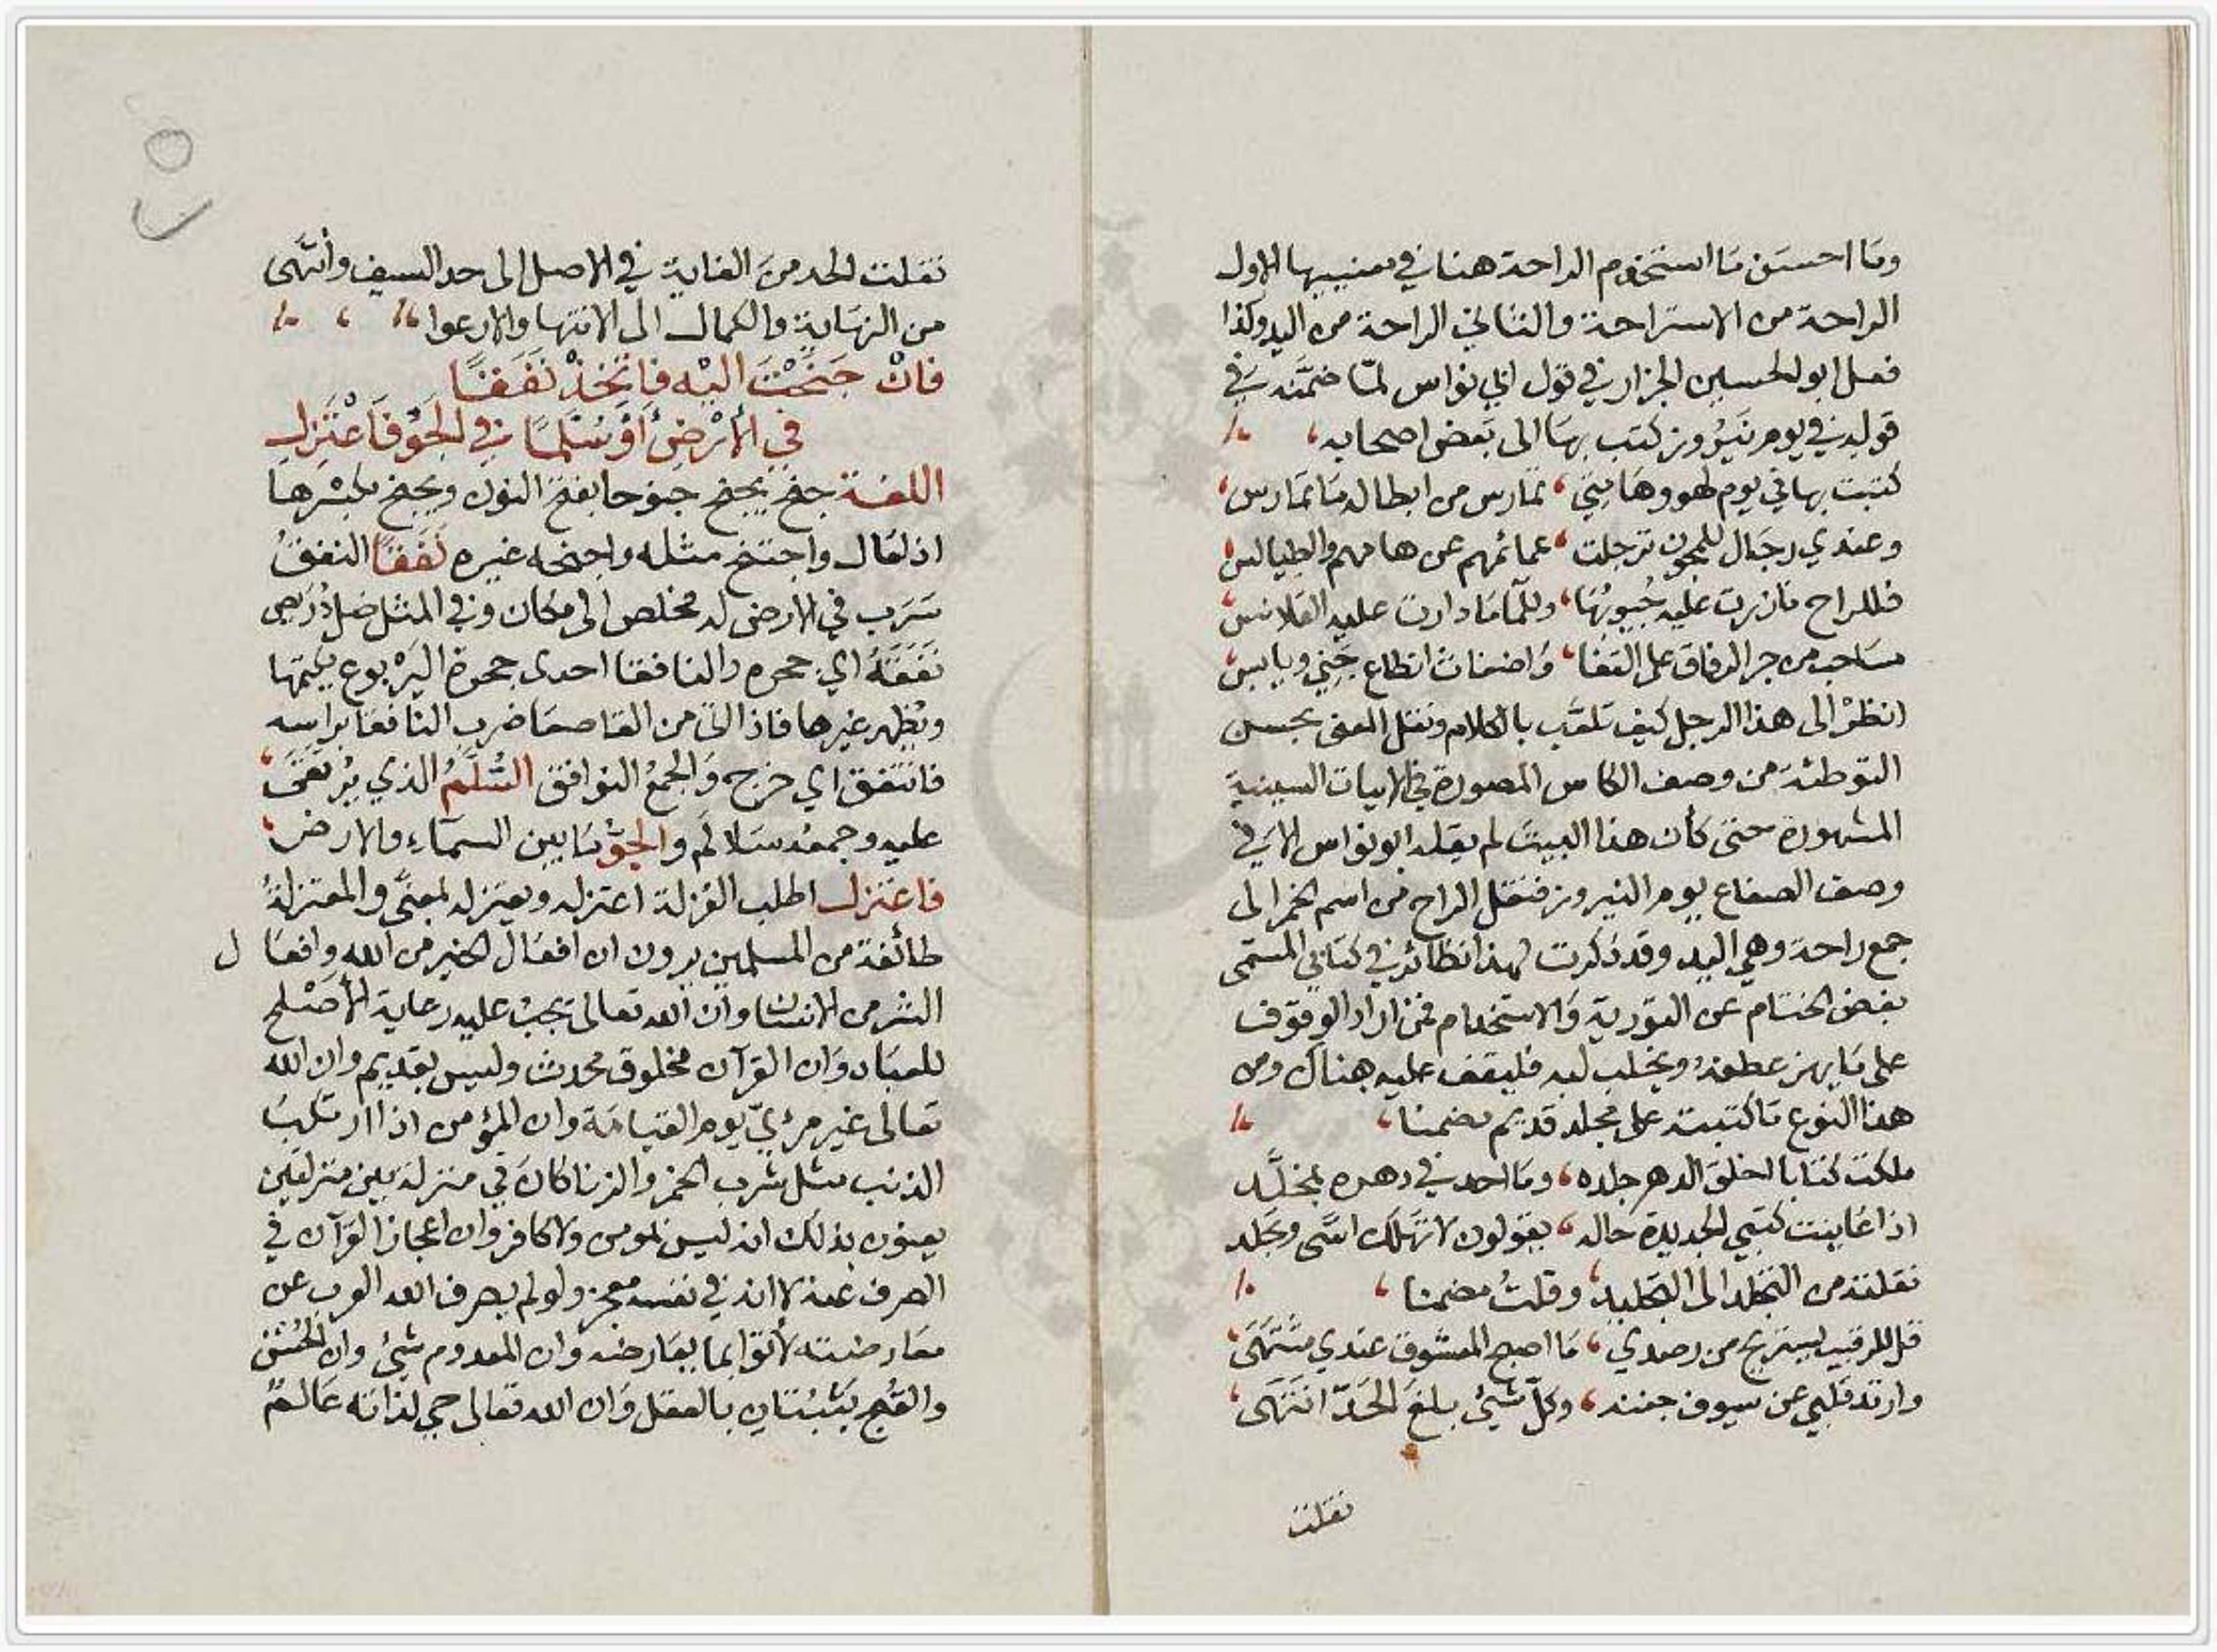 وما احسن ما استخدم الراحة هنا في معنييها الاول
الراحة من الاستراحة والثاني الراحة من اليد وكذا
فعل ابو الحسين الجزار في قول ابي نواس لمّا ضمّنه في
قوله في يوم نَيْرُوز كتب بها الى بَعض اصحابه،
كتبت بها في يوم لهو وهامتي، تمارس من ابطاله ما تمارس،
وعندي رجال للمجون ترجلت، عمائمهم عن هامهم والطيالس
فللراح ما زرت عليه جُيوبُها، وللما ما دارت عليه القلانس،
مساحب من جر الرقاق على القفا، واضغاث انطاع جني ويابس،
انظرْ الى هذا الرجل كيف تلعّب بالكلام ونقل المعنى بحسن
التوطئة من وصف الكاس المصورة في الابيات السينية
المشهورة حتى كأن هذا البيت لم يقله ابو نواس الا في
وصف الصفاع يوم النيروز فنقل الراح من اسم الخمر الى
جمع راحة وهي اليد وقد ذكرت لهذا نظائر في كتابي المسمى
بفض الختام عن التورية والاستخدام فمن اراد الوقوف
على ما يهز عطفهُ ويخلب لبه فليقف عليه هناك ومن
هذا النوع ما كتبته على مجلد قديم مضمنا،
ملكت كتابا اخلق الدهر جلده، وما احد في دهره بمخلَّد
اذا عاينت كتبي الجديدة حاله، يقولون لا تهلك اسًى وتجلد
نقلته من التجلد الى التجليد، وقلتُ مضمنا،
قل للرقيب يستريح من رصدي، ما اصبح المعشوق عندي مشتهى،
وارتد قلبي عن سيوف جفنه، وكلّ شيئ بلغ الحَدّ انتهى،
نقلت
نقلت الحد من الغاية في الاصل الى حد السيف وأنتهى
من النهاية والكمال الى الانتها والارعوا
فانْ جَنَحْتَ اليْه فاتّخذْ نَفَقًا
في الأرْضِ أوْ سُلّمًا في الجَوّ فَاعْتَزِلِ
اللغة جنح يجنح جنوحا بفتح النون ويجنح بكسْرها
اذا مال واجتنح مثله واجنحه غيره نَفَقًا النفقُ
سَرَب في الارض له مخلص الى مكان وفي المثل ضل دُرَيص
نَفَقَهُ اي جحره والنافقا احدى جحرة اليَرْبوع يكتمها
ويُظهر غيرها فاذا اتى من القاصعا ضرب النافقا براسه
فانتفق اي خرج والجمعُ النوافق السُّلَّمُ الذي يُرْتَقى،
عليه وجمعه سلالم والجوّ ما بين السماء والارض،
فاعتزل اطلب العُزلة اعتزله وتعتزله بمعنًى والمعتزلةُ
طائفة من المسلمين يرون ان افعال الخير من الله وافعا ل
الشر من الانسان وان الله تعالى يجبُ عليه رعاية الأصْلح
للعباد وان القرآن مخلوق محدث وليس بقديم وان الله
تعالى غير مرئيّ يوم القيامة وان المؤمن اذا ارتكب
الذنب مثل شرب الخمر والزنا كان في منزلة بين منزلتين
يعنون بذلك انه ليس بمومن ولا كافر وان اعجاز القرآن في
الصرف عنه لا انه في نفسه معجز ولو لم يصرف الله العرب عن
معارضته لأتوا بما يعارضه وان المعدوم شيئ وان الحُسْن
والقُبح يَثْبُتان بالعقل وان الله تعالى حي لذاته عَالمٌ